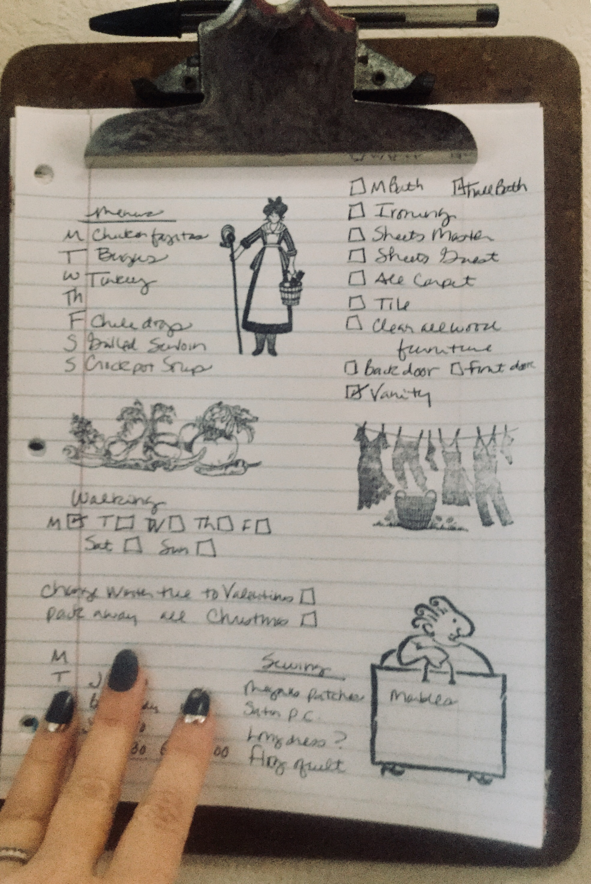 Menus
M Chicken fajitas
T Burgers
W Turkey
Th
F Chile dogs
S Broiled Sirloin
S Crockpot Soup
M Bath Full Bath
Ironing
Sheets Master
Sheets Guest
All Carpet
Tile
Clean all wood
furniture
Back door Front door
Vanity
Walking
M T W Th F
Sat Sun
Change to Valentines
pack away all Christmas
M
T
30 00
Sewing
patches
Satin P.C.
Long dress?
quilt
Marbles